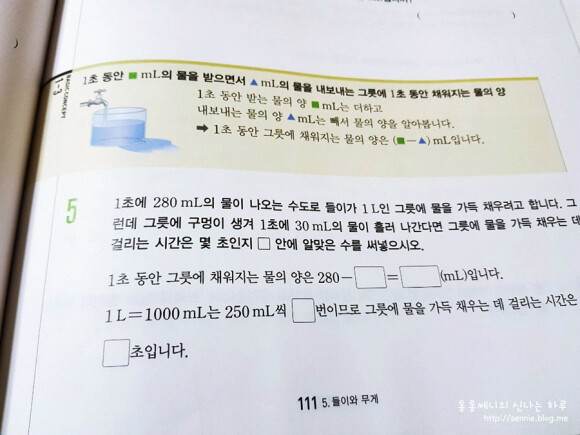 ( )
)
BASIC CONCEPT
1-3
1초 동안 ■ mL의 물을 받으면서 ▲ mL의 물을 내보내는 그릇에 1초 동안 채워지는 물의 양
1초 동안 받는 물의 양 ■ mL는 더하고
내보내는 물의 양 ▲ mL는 빼서 물의 양을 알아봅니다.
➡ 1초 동안 그릇에 채워지는 물의 양은 (■-▲) mL입니다.
5
1초에 280 mL의 물이 나오는 수도로 들이가 1 L인 그릇에 물을 가득 채우려고 합니다. 그
런데 그릇에 구멍이 생겨 1초에 30 mL의 물이 흘러 나간다면 그릇에 물을 가득 채우는 데
걸리는 시간은 몇 초인지 □ 안에 알맞은 수를 써넣으시오.
1초 동안 그릇에 채워지는 물의 양은 280-□=□(mL)입니다.
1 L=1000 mL는 250 mL씩 □번이므로 그릇에 물을 가득 채우는 데 걸리는 시간은
□초입니다.
111 5. 들이와 무게
http://sennie.blog.me